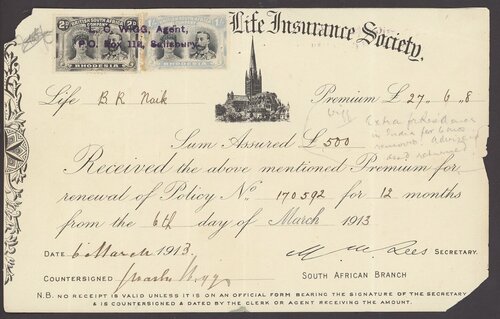 2d BRITISH SOUTH AFRICA COMPANY 2d
RHODESIA
1/- BRITISH SOUTH AFRICA COMPANY 1/-
RHODESIA
WIGG, Agent,
P.O. Box 112, Salisbury.
Life Insurance Society,
Life B R Naik Premium £ 27 " 6 " 8
Extra for residence
in India for 6 mos
removed
Sum Assured £ 500
Received the above mentioned Premium for
renewal of Policy No. 170592 for 12 months
from the 6th day of March 1913
DATE 6 March 1913. SECRETARY.
COUNTERSIGNED SOUTH AFRICAN BRANCH
N.B. NO RECEIPT IS VALID UNLESS IT IS ON AN OFFICIAL FORM BEARING THE SIGNATURE OF THE SECRETARY
& IS COUNTERSIGNED & DATED BY THE CLERK OR AGENT RECEIVING THE AMOUNT.